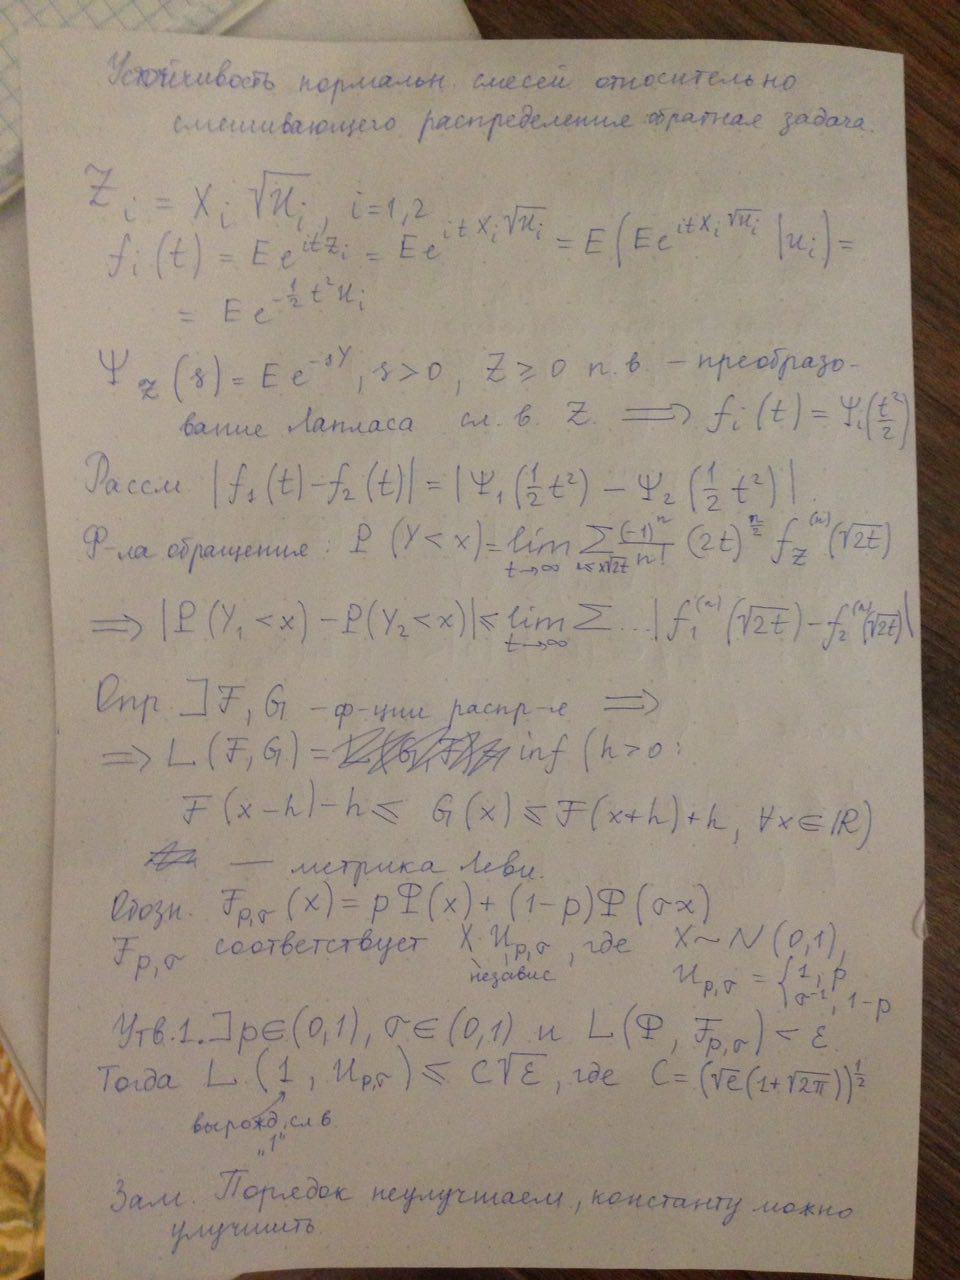 Устойчивость нормальн. смесей относительно
смешивающего распределения обратная задача.
Z_i = X_i √U_i, i=1,2
f_i(t) = E e^{itZ_i} = E e^{itX_i√U_i} = E(E e^{itX_i√U_i} | U_i) =
= E e^{-½t²U_i}
Ψ_Z(s) = E e^{-sY}, s>0, Z⩾0 п.в. – преобразо-
вание Лапласа сл. в. Z. ⟹ f_i(t) = Ψ_i(t²/2)
Рассм |f₁(t)–f₂(t)| = |Ψ₁(½t²) – Ψ₂(½t²)|.
Ф-ла обращения: P(Y<x) = lim_{t→∞} Σ_{n≤x√2t} (-1)^n/n! (2t)^{n/2} f_Z^{(n)}(√2t)
⟹ |P(Y₁<x) – P(Y₂<x)| ⩽ lim_{t→∞} Σ...|f₁^{(n)}(√2t) – f₂^{(n)}(√2t)|
Опр ]F, G – ф-ции распр-я ⟹
⟹ L(F,G) = inf (h>0:
F(x-h)-h ⩽ G(x) ⩽ F(x+h)+h, ∀x∈ℝ)
— метрика Леви.
Обозн. F_{p,σ}(x) = pΦ(x) + (1-p)Φ(σx)
F_{p,σ} соответствует X·U_{p,σ}, где X~N(0,1),
независ
U_{p,σ} = {1, p
σ⁻¹, 1-p
Утв.1. ]p∈(0,1), σ∈(0,1) и L(Φ, F_{p,σ}) < ε.
Тогда L(1, U_{p,σ}) ⩽ C√ε, где C = (√e(1+√2π))^{½}
вырожд. сл в.
„1"
Зам. Порядок неулучшаем, константу можно
улучшить.